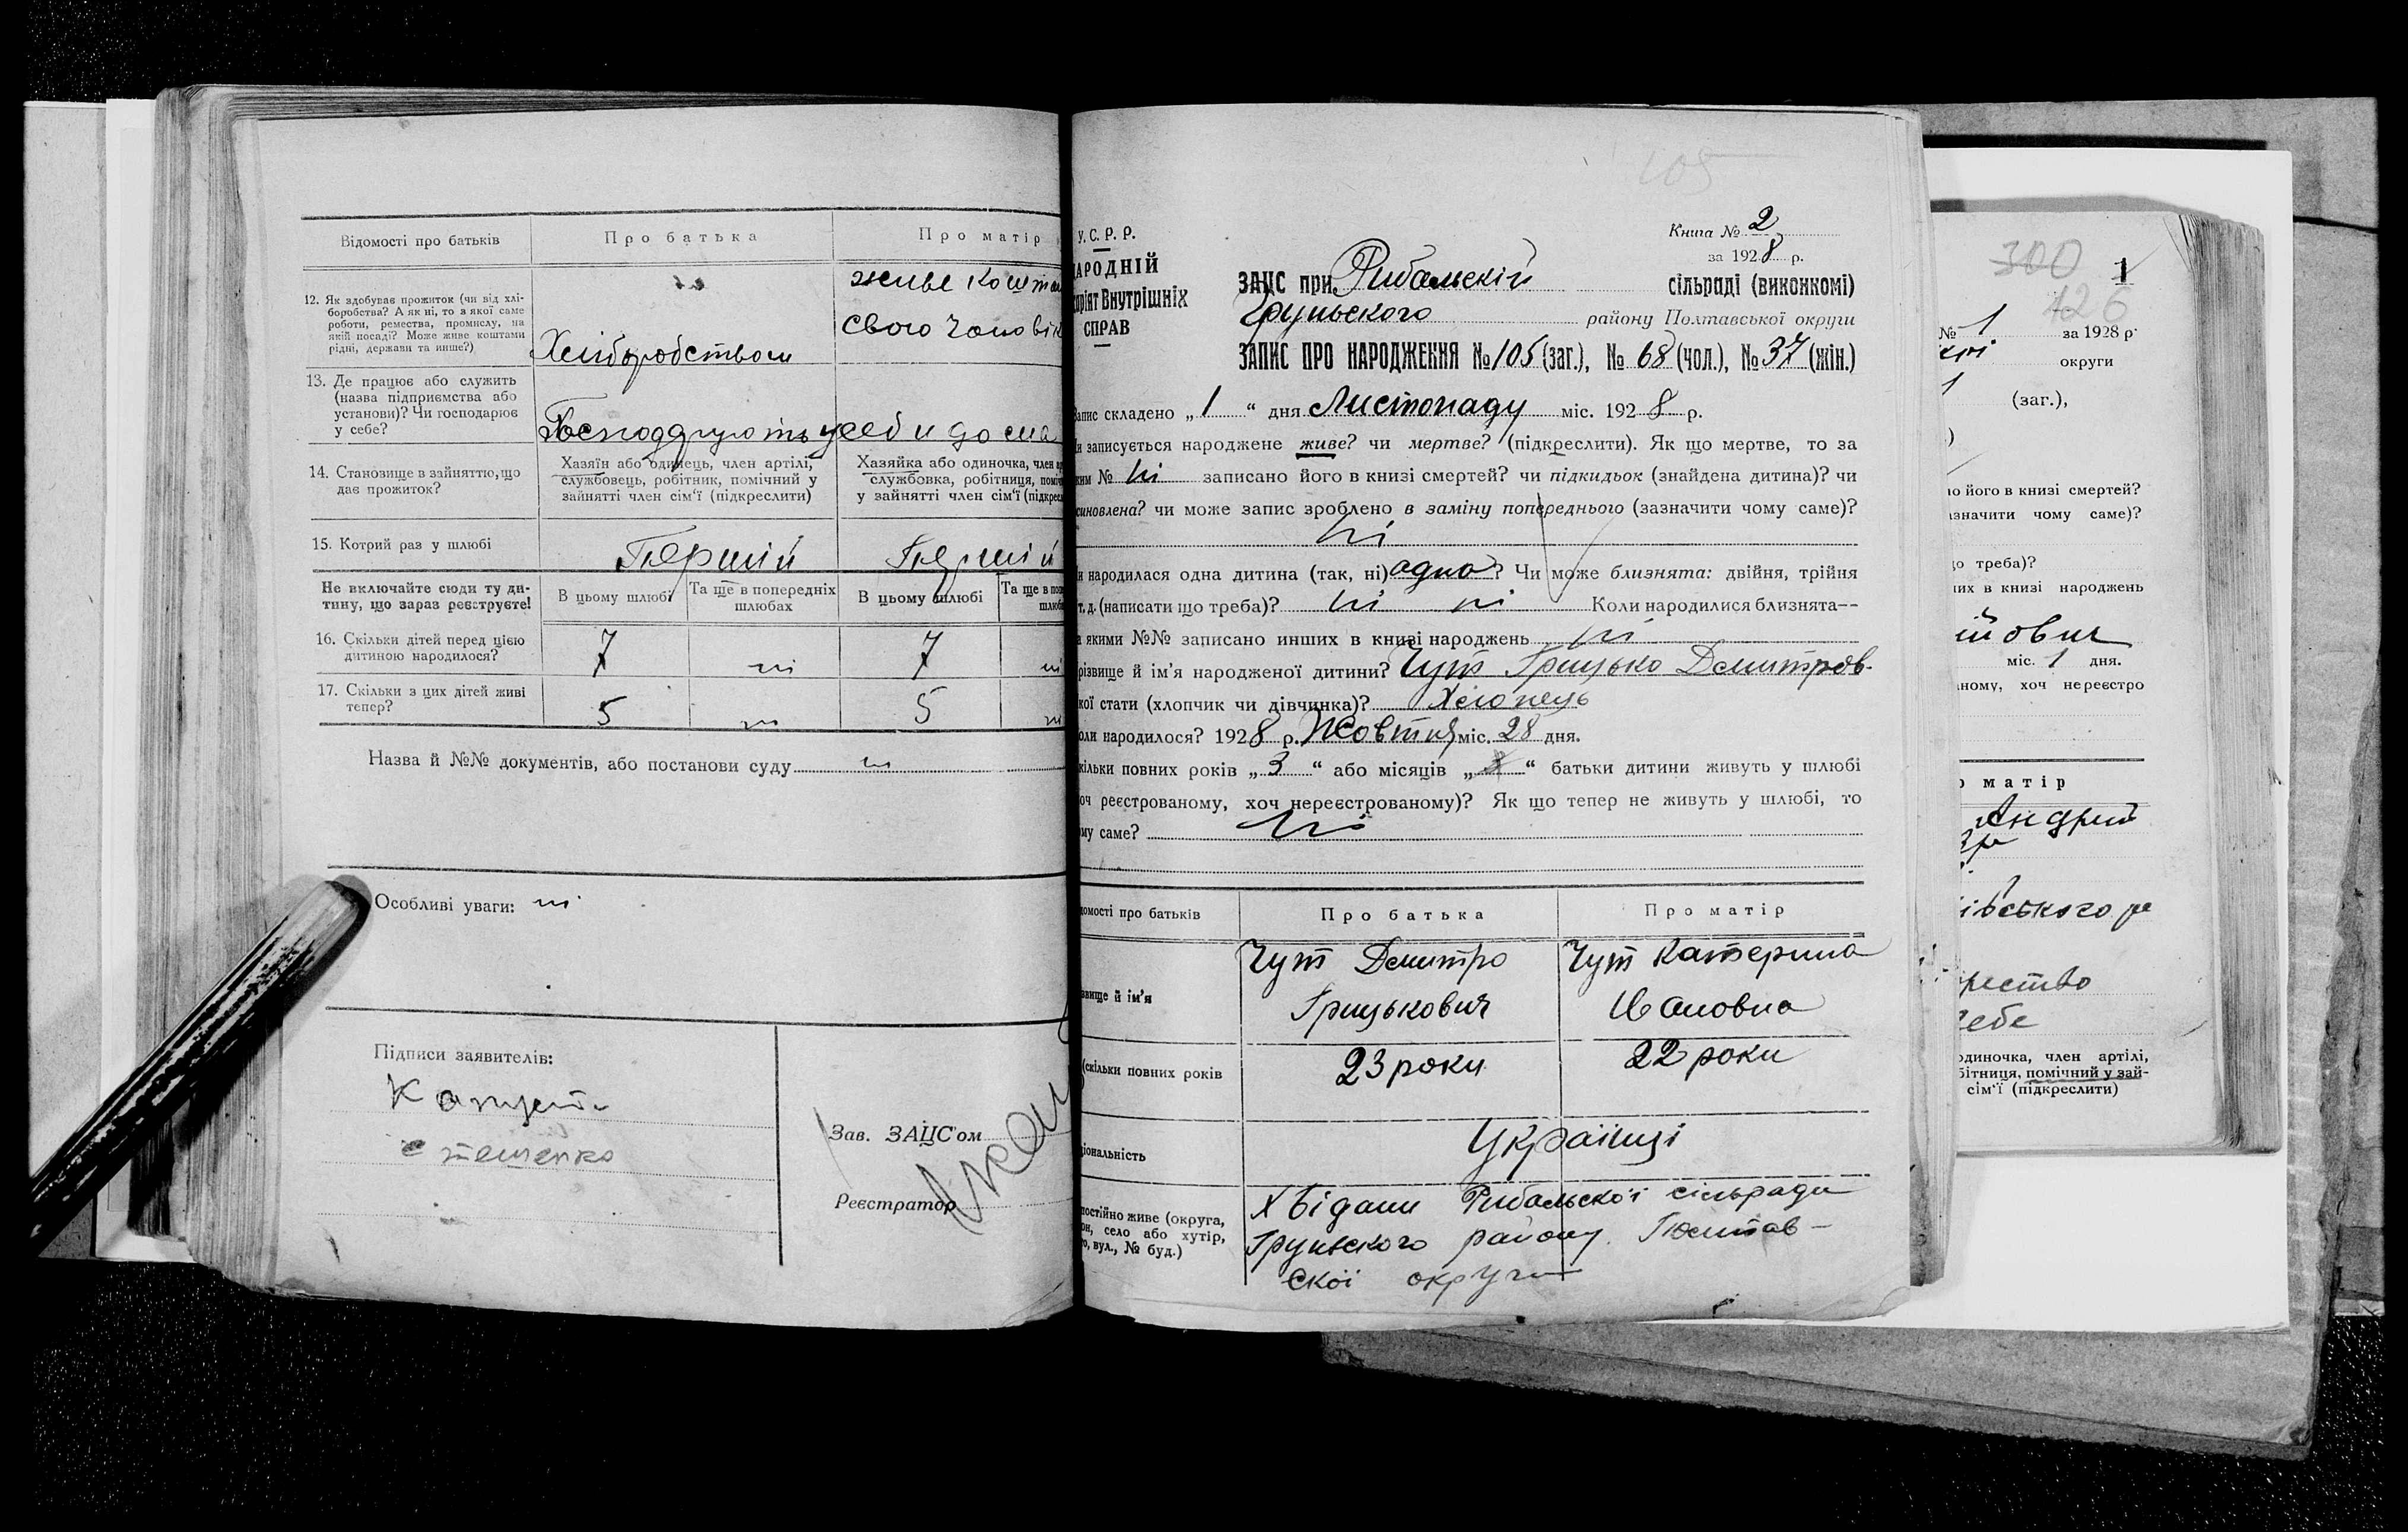 Відомості про батьків
Про батька
Про матір
12. Як здобуває прожиток (чи від хлі-
боробства? А як ні, то з якої саме
роботи, ремества, промислу, на
якій посаді? Може живе коштами
рідні, держави та инше?)
Хліборобством
живе кошта
свого чоловік
13. Де працює або служить
(назва підприємства або
установи)? Чи господарює
у себе?
у себ и дома
14. Становище в зайняттю, що
дає прожиток?
Хазяїн або одинець, член артілі,
службовець, робітник, помічний у
зайнятті член сім'ї (підкреслити)
Хазяйка або одиночка, член ар
службовка, робітниця, поміч
у зайнятті член сім'ї (підкрес
15. Котрий раз у шлюбі
Перший
Перший
Не включайте сюди ту ди-
тину, що зараз реєструєте!
В цьому шлюбі
Та ще в попередніх
шлюбах
В цьому шлюбі
Та ще в поп
шлюба
16. Скільки дітей перед цією
дитиною народилося?
7 ні 7 ні
17. Скільки з цих дітей живі
тепер?
5 ні 5 ні
Назва й №№ документів, або постанови суду ні
Особливі уваги: ні
Підписи заявителів:
Зав. ЗАЦС'ом
Реєстратор
105
У. С. Р. Р.
АРОДНІЙ
ріят Внутрішніх
СПРАВ
Книга № 2
за 1928 р.
ЗАЦС при Рибальскій сільраді (виконкомі)
Груньского району Полтавської округи
ЗАПИС ПРО НАРОДЖЕННЯ № 105 (заг.), № 68 (чол.), № 37 (жін.)
Запис складено „1“ дня Листопаду міс. 1928 р.
и записується народжене живе? чи мертве? (підкреслити). Як що мертве, то за
ким № ні записано його в книзі смертей? чи підкидьок (знайдена дитина)? чи
синовлена? чи може запис зроблено в заміну попереднього (зазначити чому саме)?
ні
и народилася одна дитина (так, ні) одна? Чи може близнята: двійня, трійня
т. д. (написати що треба)? ні ні Коли народилися близнята--
а якими №№ записано инших в книзі народжень ні
різвище й ім'я народженої дитини? Чут Грицько Демитров-
кої стати (хлопчик чи дівчинка)? Хлопець
оли народилося? 1928 р. Жовтня міс. 28 дня.
кільки повних років „3“ або місяців „ “ батьки дитини живуть у шлюбі
оч реєстрованому, хоч нереєстрованому)? Як що тепер не живуть у шлюбі, то
ому саме? ні
домості про батьків
Про батька
Про матір
звище й ім'я
Чут Демитро
Грицькович
Чут Катерина
Ивановна
(скільки повних років
23 роки
22 роки
ціональність
Українці
постійно живе (округа,
он, село або хутір,
то, вул., № буд.)
Рибальської сільради
Груньского району Полтав-
скої округи
300
1
126
№ 1 за 1928 р.
округи
1 (заг.),
)
о його в книзі смертей?
азначити чому саме)?
що треба)?
их в книзі народжень
йович
міс. 1 дня.
аному, хоч нереєстро
о матір
Андрий
івського
рество
себе
одиночка, член артілі,
бітниця, помічний у зай-
сім'ї (підкреслити)